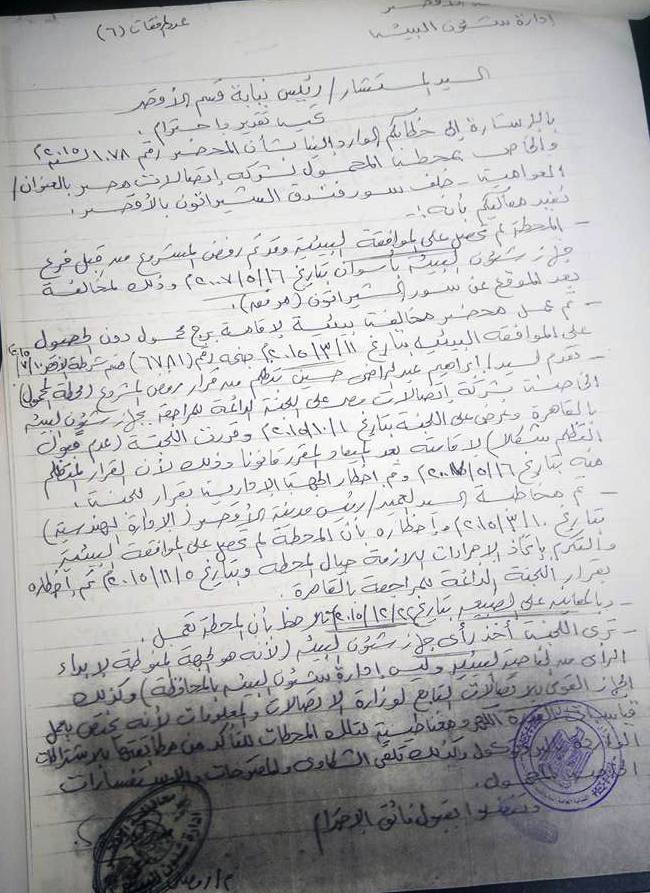 عدد المرفقات (٦)
إدارة شئون البيئة
السيد المستشار / رئيس نيابة قسم الأقصر
تحية تقدير واحترام ،
بالإشارة إلى خطابكم الوارد إلينا بشأن المحضر رقم ١٠٧٨ لسنة ٢٠١٥م
والخاص بمحطة المحمول لشركة إتصالات مصر بالعنوان /
العوامية - خلف سور فندق الشيراتون بالأقصر .
نفيد معاليكم بأنه :-
- المحطة لم تحصل على الموافقة البيئية وقد تم رفض المشروع من قبل فرع
جهاز شئون البيئة بأسوان بتاريخ ١٦/٥/٢٠٠٧م وذلك لمخالفة
بعد الموقع عن سور الشيراتون (مرفق).
- تم عمل محضر مخالفة بيئية لإقامة برج محمول دون الحصول
على الموافقة البيئية بتاريخ ١١/٣/٢٠١٥م جنحة رقم (٦٧٨١)
- تقدم السيد / إبراهيم عبدالراضى حسين بتظلم من قرار رفض المشروع (محطة المحمول)
الخاصة بشركة إتصالات مصر على اللجنة الدائمة للمراجعة بجهاز شئون البيئة
بالقاهرة وعرض على اللجنة بتاريخ ١/١٠/٢٠١٥م وقررت اللجنة (عدم قبول
التظلم شكلا) لإقامته بعد الميعاد المقرر قانونا وذلك لأن القرار المتظلم
منه بتاريخ ١٦/٥/٢٠٠٧م وتم اخطار الجهة الإدارية بقرار اللجنة .
- تم مخاطبة السيد العميد / رئيس مدينة الأقصر (الإدارة الهندسية)
بتاريخ ١٠/٣/٢٠١٥م وإخطاره بأن المحطة لم تحصل على الموافقة البيئية
والتكرم بإتخاذ الإجراءات اللازمة حيال المحطة وبتاريخ ٥/١١/٢٠١٥م تم إخطاره
بقرار اللجنة الدائمة للمراجعة بالقاهرة .
- وبالمعاينة على الطبيعة بتاريخ ٢٢/١٢/٢٠١٥م لاحظ بأن المحطة تعمل .
- ترى اللجنة أخذ رأى جهاز شئون البيئة (لأنه هو الجهة المنوطة لإبداء
الرأى من الناحية البيئية وليس إدارة شئون البيئة بالمحافظة) وكذلك
الجهاز القومى للاتصالات التابع لوزارة الاتصالات والمعلومات لأنه يختص بعمل
قياسات الكهرومغناطيسية لتلك المحطات للتأكد من مطابقتها بالاشتراطات
وكذلك تلقى الشكاوى والمقترحات والاستفسارات
الخاصة بالمحمول .
وتفضلوا بقبول فائق الإحترام